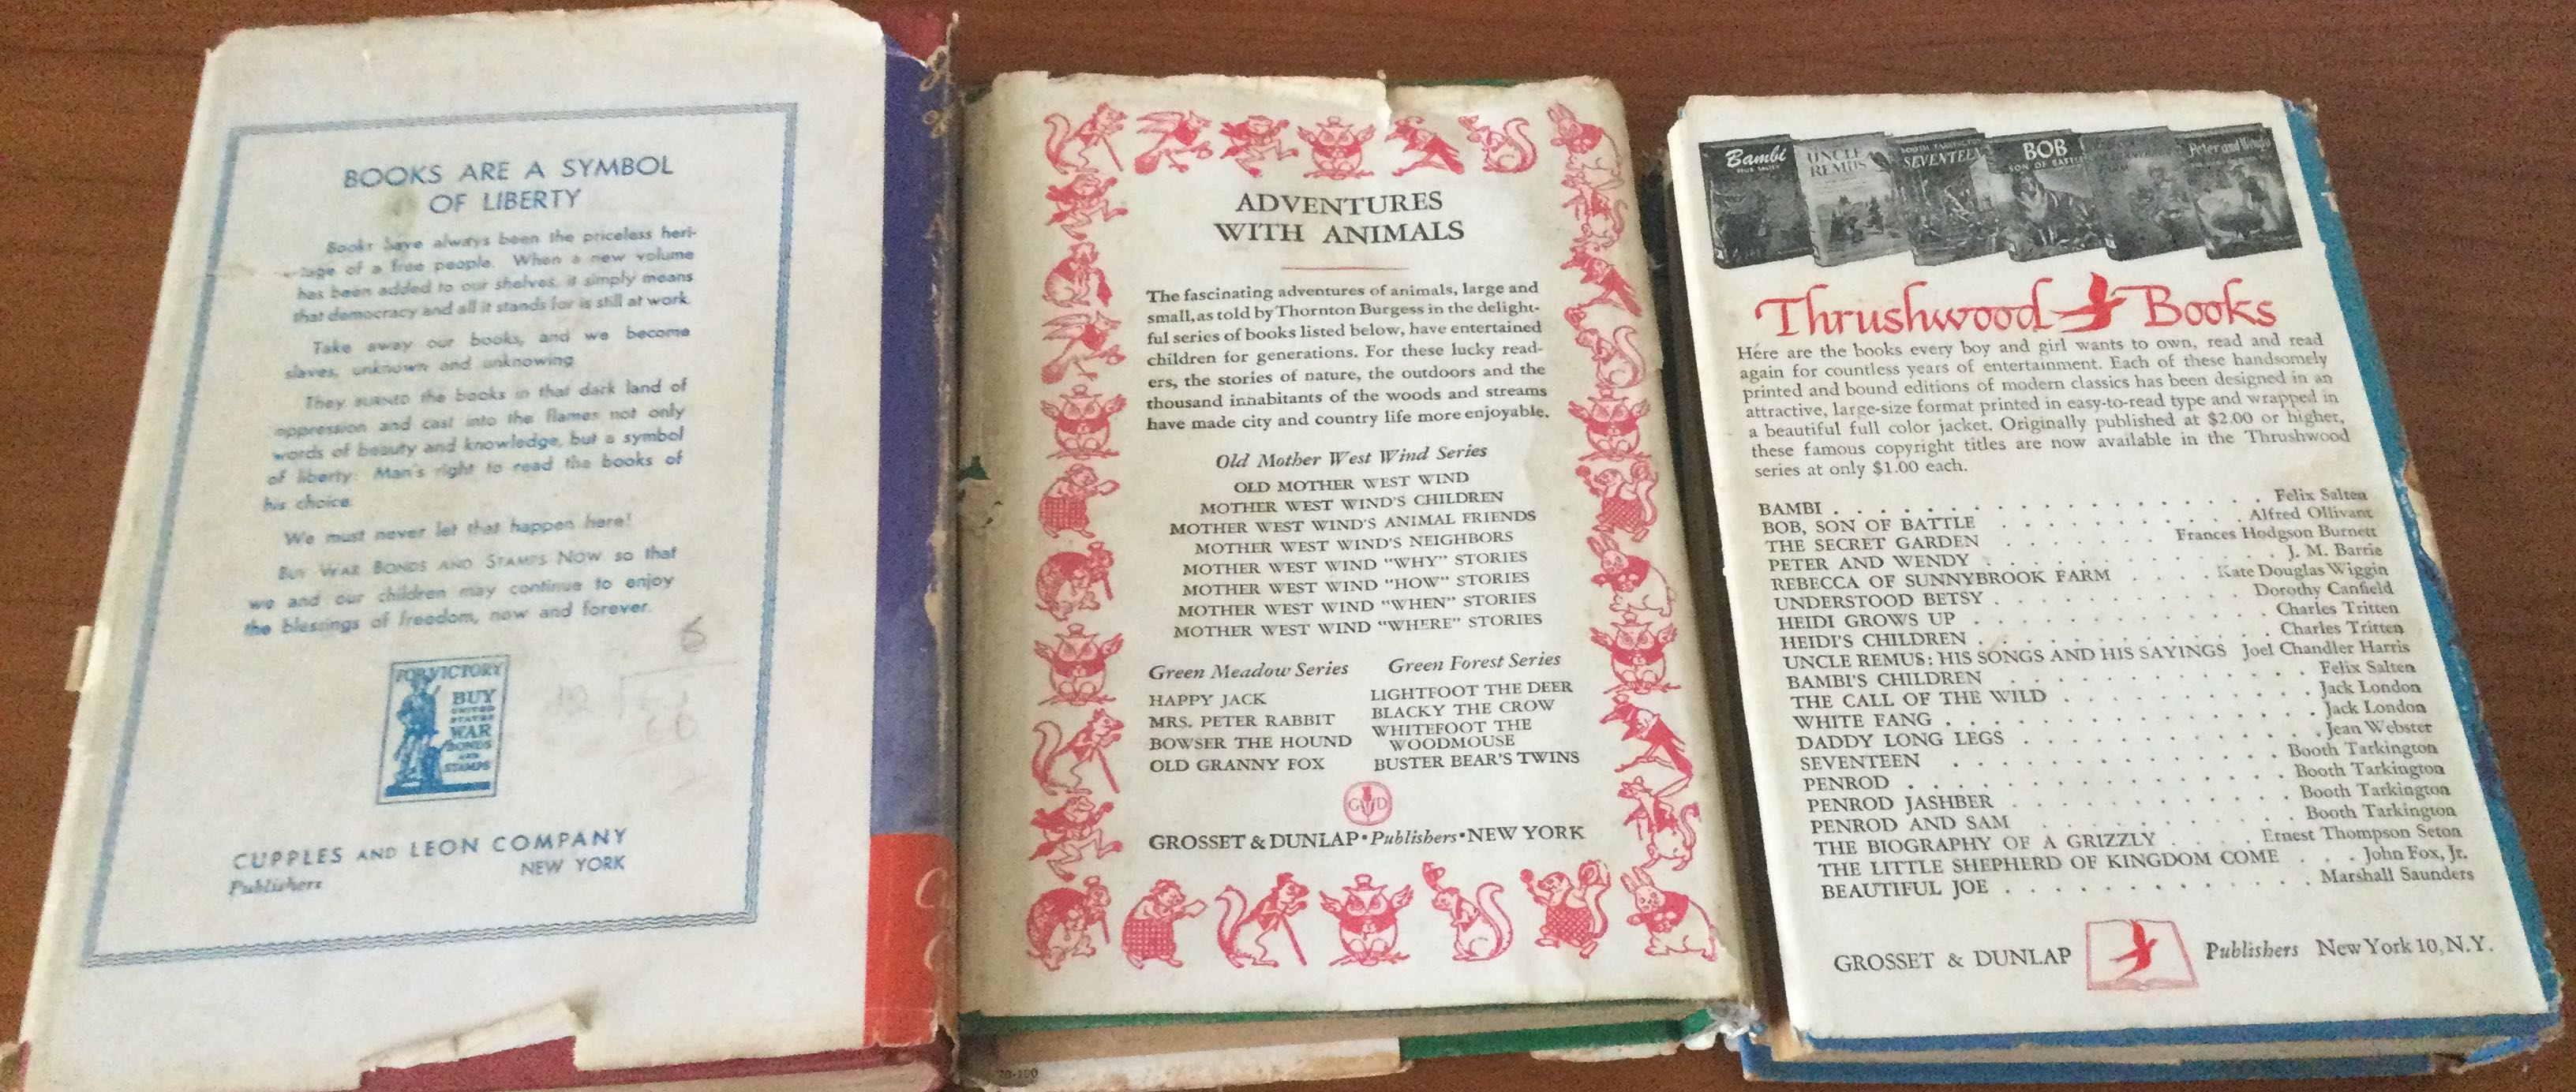 BOOKS ARE A SYMBOL
OF LIBERTY
Books have always been the priceless heri-
tage of a free people. When a new volume
has been added to our shelves, it simply means
that democracy and all it stands for is still at work.
Take away our books, and we become
slaves, unknown and unknowing
They BURNED the books in that dark land of
oppression and cast into the flames not only
words of beauty and knowledge, but a symbol
of liberty: Man's right to read the books of
his choice.
We must never let that happen here!
BUY WAR BONDS AND STAMPS NOW so that
we and our children may continue to enjoy
the blessings of freedom, now and forever.
FOR VICTORY
BUY
UNITED
STATES
WAR
BONDS
AND
STAMPS
CUPPLES AND LEON COMPANY
Publishers NEW YORK
ADVENTURES
WITH ANIMALS
The fascinating adventures of animals, large and
small, as told by Thornton Burgess in the delight-
ful series of books listed below, have entertained
children for generations. For these lucky read-
ers, the stories of nature, the outdoors and the
thousand inhabitants of the woods and streams
have made city and country life more enjoyable.
Old Mother West Wind Series
OLD MOTHER WEST WIND
MOTHER WEST WIND'S CHILDREN
MOTHER WEST WIND'S ANIMAL FRIENDS
MOTHER WEST WIND'S NEIGHBORS
MOTHER WEST WIND "WHY" STORIES
MOTHER WEST WIND "HOW" STORIES
MOTHER WEST WIND "WHEN" STORIES
MOTHER WEST WIND "WHERE" STORIES
Green Meadow Series
HAPPY JACK
MRS. PETER RABBIT
BOWSER THE HOUND
OLD GRANNY FOX
Green Forest Series
LIGHTFOOT THE DEER
BLACKY THE CROW
WHITEFOOT THE
WOODMOUSE
BUSTER BEAR'S TWINS
G D
GROSSET & DUNLAP • Publishers • NEW YORK
70-100
Bambi
UNCLE
REMUS
BOOTH TARKINGTON
SEVENTEEN
BOB
SON OF BATTLE
Peter and Wendy
Thrushwood Books
Here are the books every boy and girl wants to own, read and read
again for countless years of entertainment. Each of these handsomely
printed and bound editions of modern classics has been designed in an
attractive, large-size format printed in easy-to-read type and wrapped in
a beautiful full color jacket. Originally published at $2.00 or higher,
these famous copyright titles are now available in the Thrushwood
series at only $1.00 each.
BAMBI . . . . . . . . . . . . Felix Salten
BOB, SON OF BATTLE . . . . . . . . Alfred Ollivant
THE SECRET GARDEN . . . . . . . Frances Hodgson Burnett
PETER AND WENDY . . . . . . . . . J. M. Barrie
REBECCA OF SUNNYBROOK FARM . . . . Kate Douglas Wiggin
UNDERSTOOD BETSY . . . . . . . . Dorothy Canfield
HEIDI GROWS UP . . . . . . . . . Charles Tritten
HEIDI'S CHILDREN . . . . . . . . . Charles Tritten
UNCLE REMUS: HIS SONGS AND HIS SAYINGS Joel Chandler Harris
BAMBI'S CHILDREN . . . . . . . . . Felix Salten
THE CALL OF THE WILD . . . . . . . Jack London
WHITE FANG . . . . . . . . . . . Jack London
DADDY LONG LEGS . . . . . . . . . Jean Webster
SEVENTEEN . . . . . . . . . . Booth Tarkington
PENROD . . . . . . . . . . . Booth Tarkington
PENROD JASHBER . . . . . . . . Booth Tarkington
PENROD AND SAM . . . . . . . . Booth Tarkington
THE BIOGRAPHY OF A GRIZZLY . . . . Ernest Thompson Seton
THE LITTLE SHEPHERD OF KINGDOM COME . . . John Fox, Jr.
BEAUTIFUL JOE . . . . . . . . . Marshall Saunders
GROSSET & DUNLAP Publishers New York 10, N.Y.